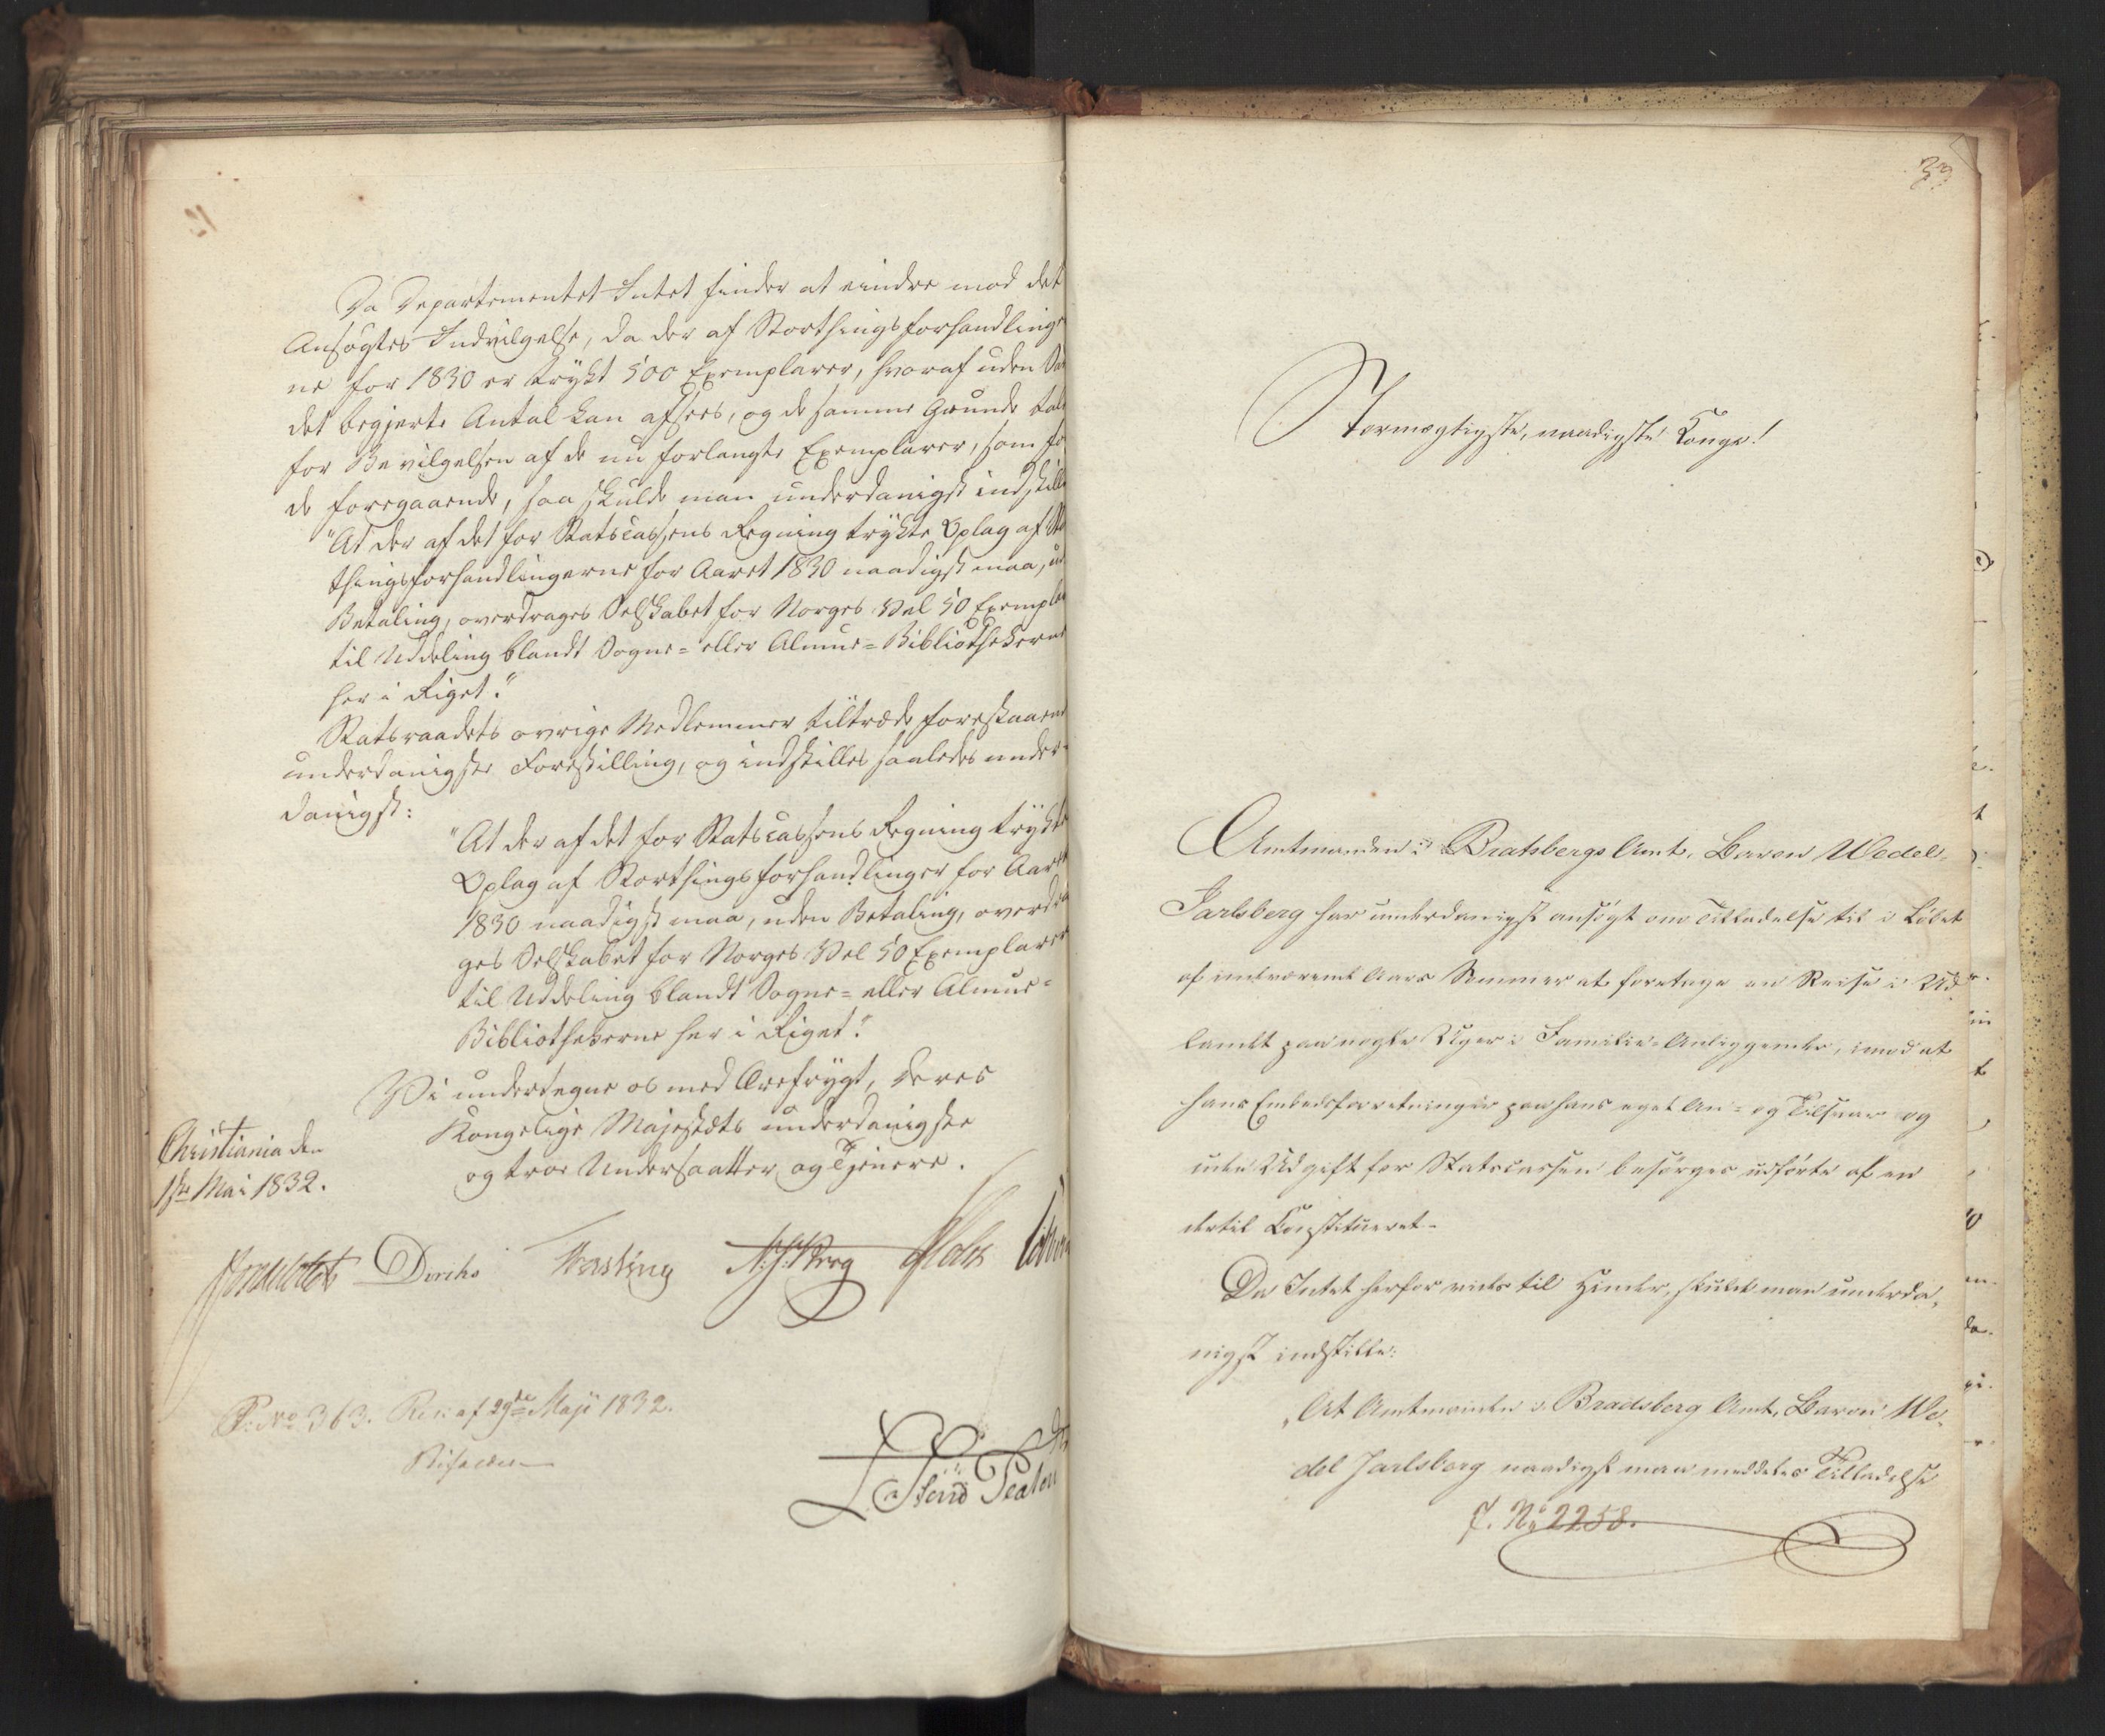 Da Departementet Intet finder at erindre mod det
Ansøgtes Indvilgelse, da der af Storthingsforhandlinge
ne for 1830 er trykt 500 Exemplarer, hvoraf uden
det begjerte Antal kan afsees, og de samme Grunde tale
for Bevilgelsen af de nu forlangte Exemplarer, som for
de foregaaende, saa skulde man underdanigst indstille
"At der af det for Statscassens Regning trykte Oplag af
thingsforhandlingerne for Aaret 1830 naadigst maa, uden
Betaling, overdrages Selskabet for Norges Vel 50 Exempla
til Uddeling blandt Sogne= eller Almue=Bibliothekerne
her i Riget."
Statsraadets øvrige Medlemmer tiltræde foreskaaende
underdanigste Forestilling, og indstilles saaledes under=
danigst:
"At der af det for Statscassens Regning trykte
Oplag af Storthingsforhandlinger for Aaret
1830 naadigst maa, uden Betaling, overdra
ges Selskabet for Norges Vel 50 Exemplarer
til Uddeling blandt Sogne= eller Almue=
Bibliothekerne her i Riget."
Vi undertegne os med Ærefrygt, Deres
Kongelige Majestæts underdanigste
og troe Undersaatter og Tjenere.
Christiania den
1ste Mai 1832.
Diriks
N. J. Berg
P: No 363. Res: af 29de Maji 1832.
Bifaldes
33
Stormægtigste, naadigste Konge!
Amtmanden i Bratsbergs Amt, Baron Wedel
Jarlsberg har underdanigst ansøgt om Tilladelse til i Løbet
af indeværende Aars Sommer at foretage en Reise i Ud
landet paa nogle Uger i Familie=Anliggender, imod at
hans Embedsforretninger paa hans eget An= og Tilsvar og
uden Udgift for Statscassen besørges udførte af en
dertil Constitueret.
Da Intet herfor vides til Hinder, skulde man underda,
nigst indstille:
"At Amtmanden i Bradsberg Amt, Baron We,
del Jarlsberg naadigst maa meddeles Tilladelse
J. No 2258.